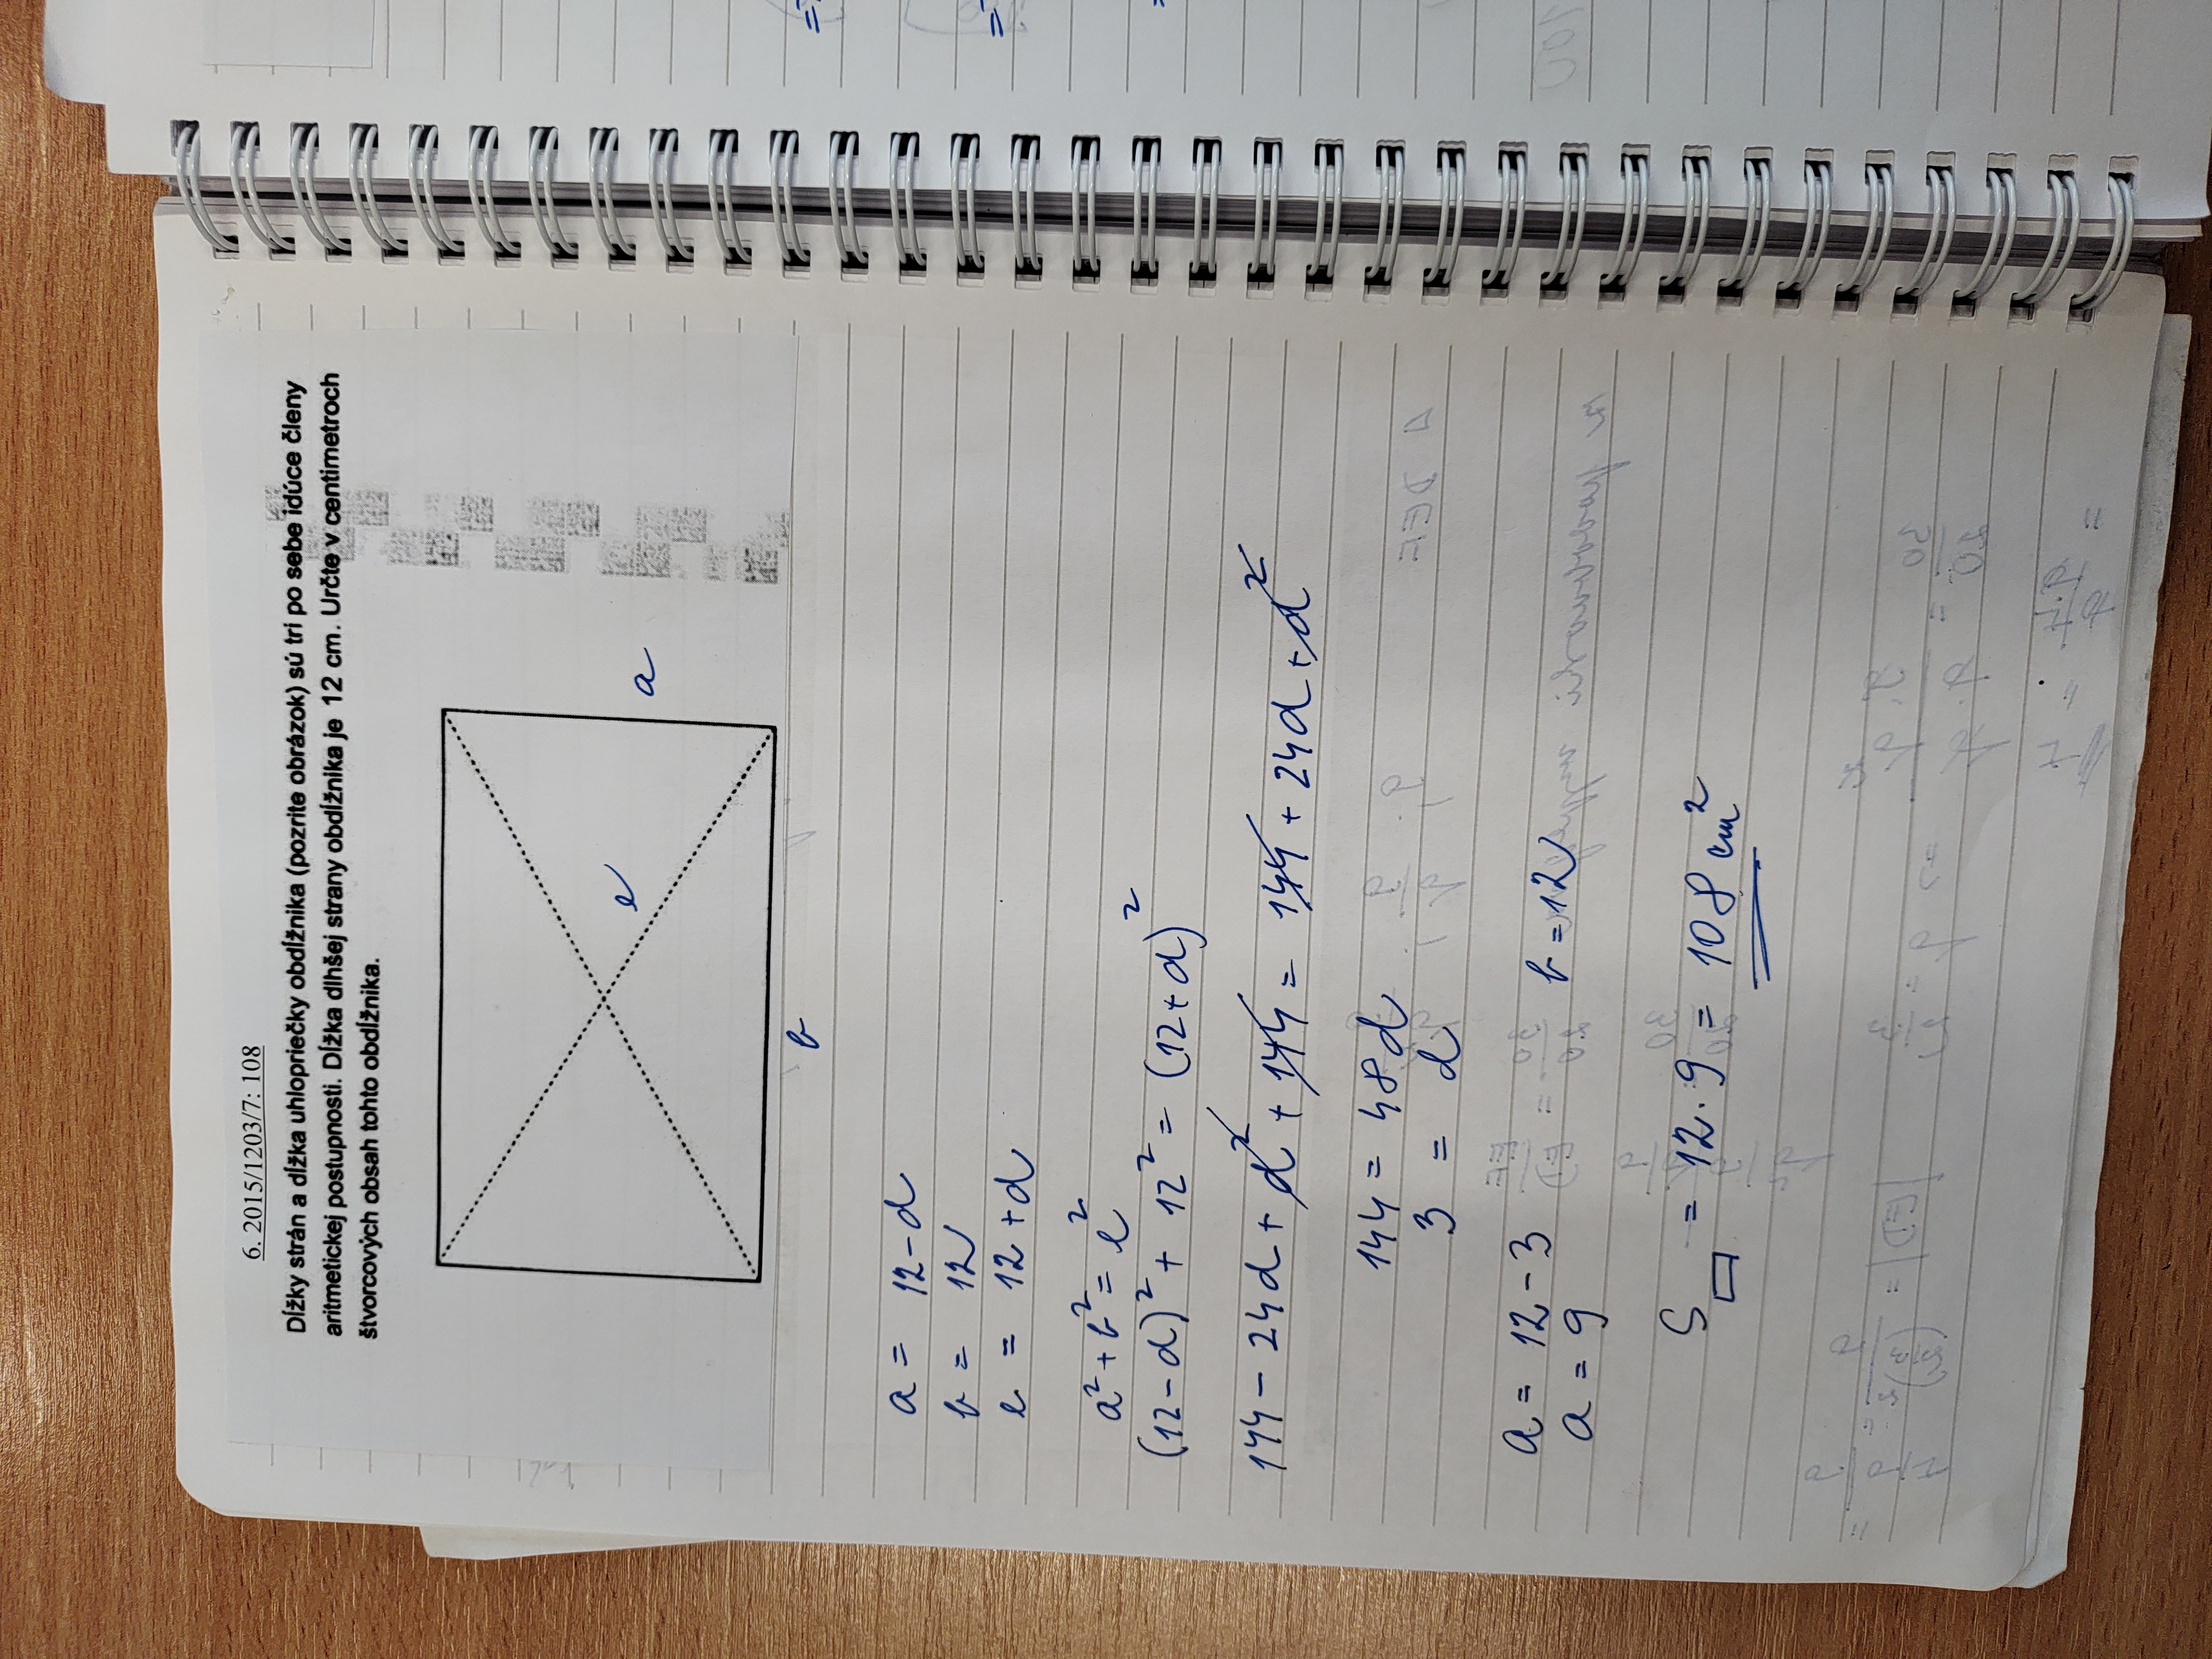 6. 2015/1203/7: 108
Dĺžky strán a dĺžka uhlopriečky obdĺžnika (pozrite obrázok) sú tri po sebe idúce členy
aritmetickej postupnosti. Dĺžka dlhšej strany obdĺžnika je 12 cm. Určte v centimetroch
štvorcových obsah tohto obdĺžnika.
e
a
b
a = 12-d
b = 12
e = 12+d
a²+b² = e²
(12-d)² + 12² = (12+d)²
144 - 24d + d² + 144 = 144 + 24d + d²
144 = 48d
3 = d
a = 12-3 b = 12
a = 9
S▭ = 12·9 = 108 cm²